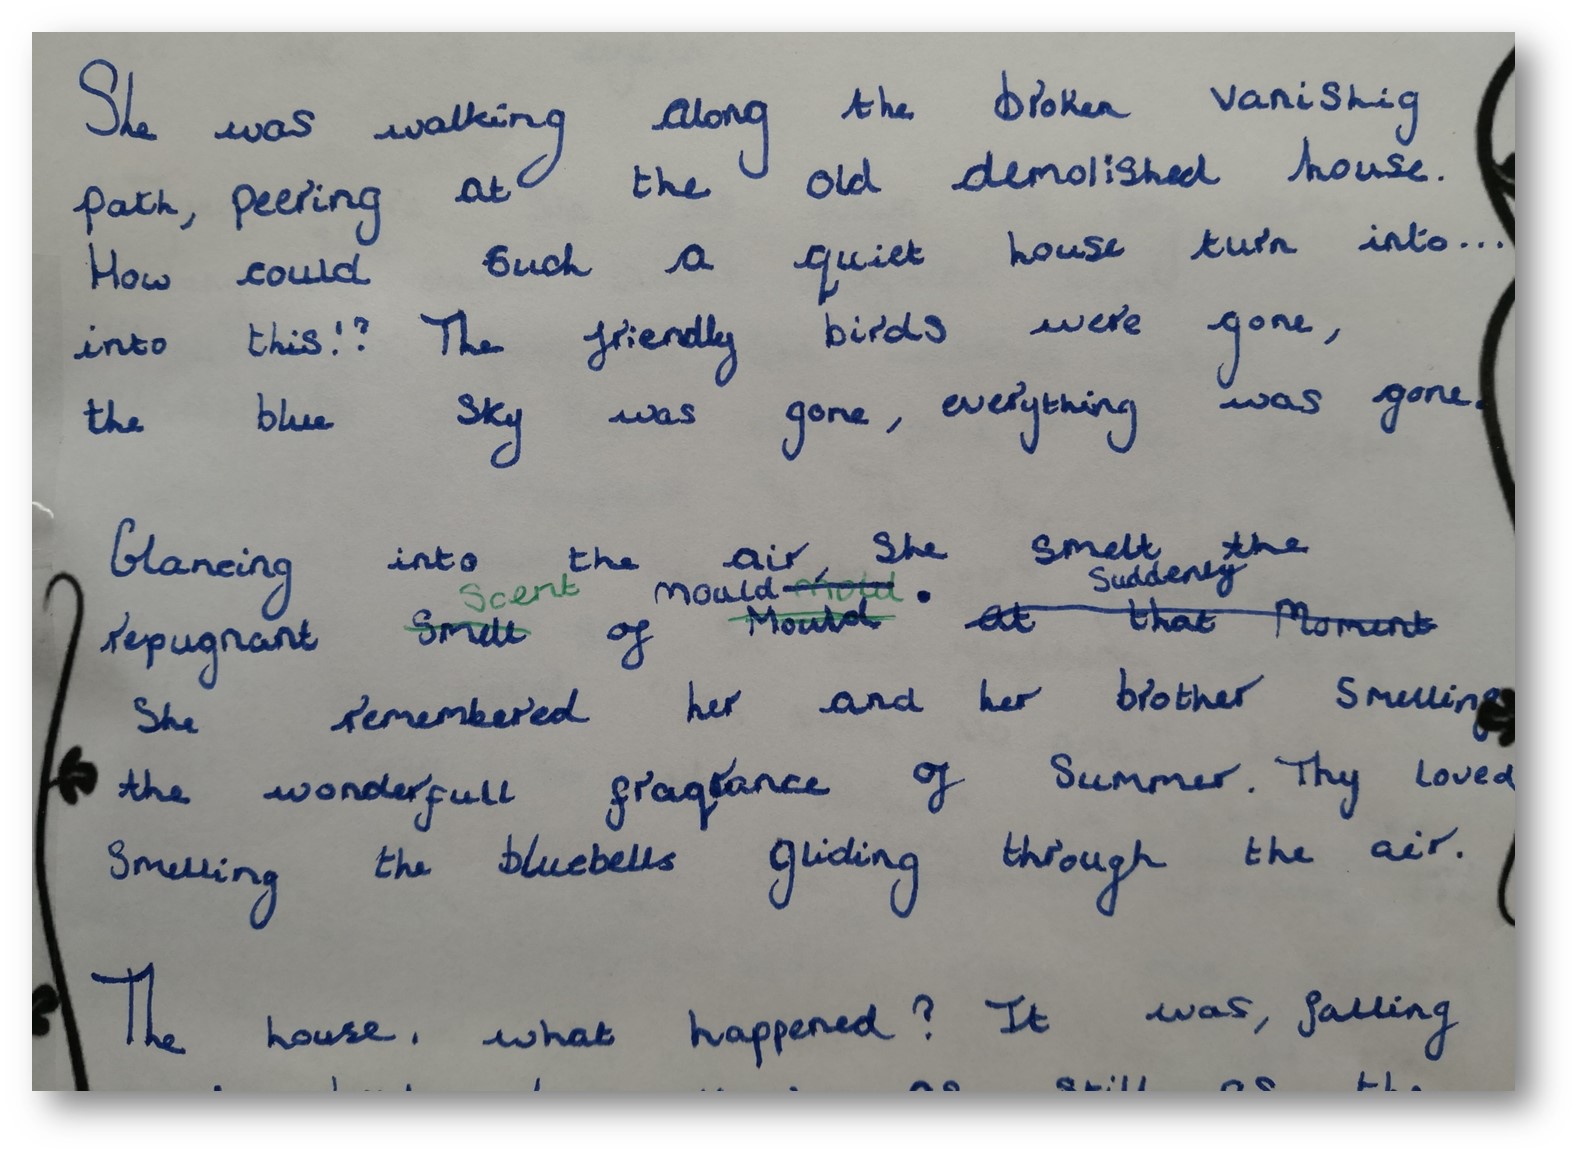 She was walking along the broken vanishig
path, peering at the old demolished house.
How could such a quiet house turn into...
into this!? The friendly birds were gone,
the blue sky was gone, everything was gone.
Glancing into the air, She smelt the
Scent mould mold . Suddenly
repugnant Smelt of Mould at that Moment
She remembered her and her brother Smelling
the wonderfull fragrance of Summer. Thy Loved
Smelling the bluebells gliding through the air.
The house. what happened? It was, falling
as still as the